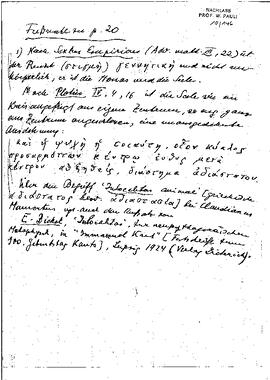 NACHLASS
PROF. W. PAULI
Fußnote zu p. 20
1) Nach Sextus Empiricus (Adv. math. IV, 22) ist
der Punkt (στιγμή) γεννητική und nicht
körperlich, er ist die Monas und die Seele.
Nach Plotin IV, 4, 16 ist die Seele wie ein
Kreis angefügt an eigenes Zentrum,
ans Zentrum angewachsen, eine unausgedehnte
Ausdehnung:
καὶ ἡ ψυχὴ ἡ τοιαύτη, οἷον κύκλος
προσαρμόττων κέντρῳ εὐθὺς μετὰ
κέντρον αὐξηθείς, διάστημα ἀδιάστατον.
Über den Begriff "Inlocalitas animae" [griechisch
ἀδιάστατος bezw. ἀδιαστασία] bei Claudianus
Mamertus vgl. auch den Aufsatz von
E. Bickel, "Inlocalitas", zur neupythagoreischen
Metaphysik, in "Immanuel Kant" [Festschrift zum
200. Geburtstag Kants], Leipzig 1924 (Verlag Dieterich).